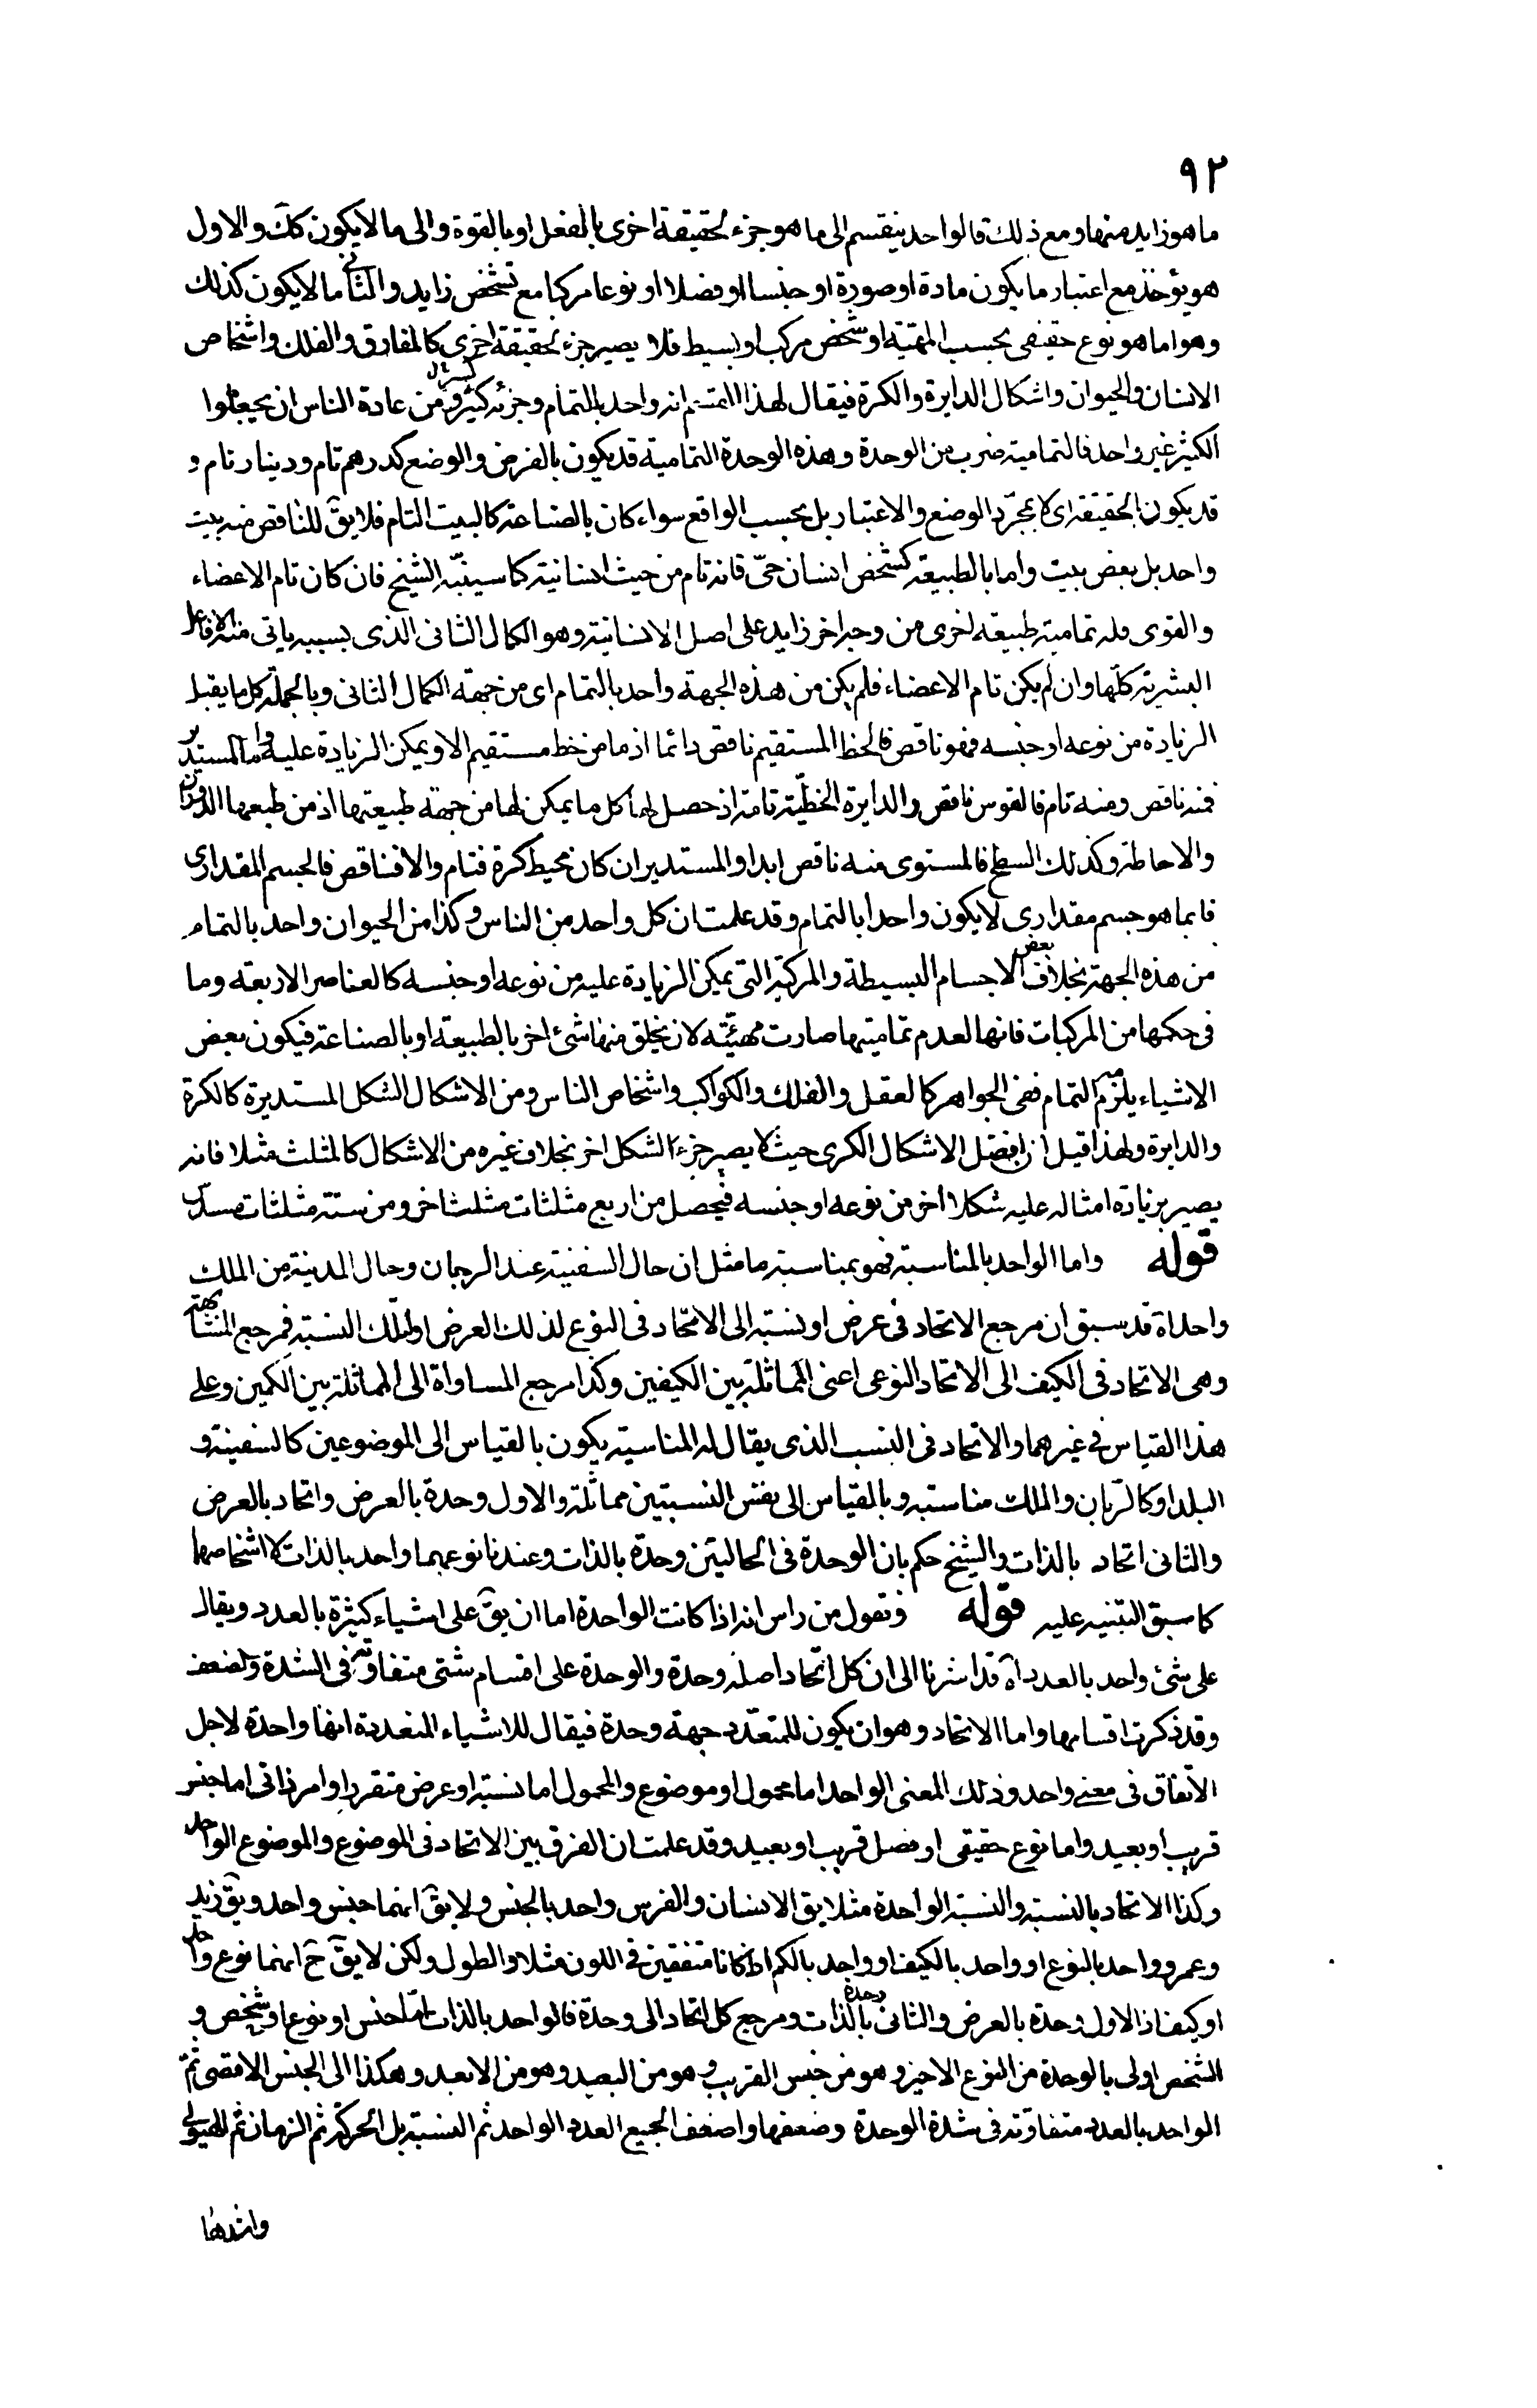 ٩٢
ما هو زايد منها ومع ذلك فالواحد ينقسم الى ما هو جزء لحقيقة اخرى بالفعل او بالقوة والى ما لا يكون كك والاول
هو يؤخذ مع اعتبار ما يكون مادة او صورة او جنسا او فصلا او نوعا مركبا مع تشخص زايد والثانى ما لا يكون كذلك
وهو اما هو نوع حقيقى بحسب المهيّة او شخص مركب او بسيط فلا يصير جزء لحقيقة اخرى كالمفارق والفلك واشخاص
الانسان والحيوان واشكال الدايرة والكرة فيقال لهذا القسم انه واحد بالتمام وجزئه كثير ومن عادة الناس ان يجعلوا
الكثير غير واحد فالتمامية ضرب من الوحدة وهذه الوحدة التمامية قد يكون بالفرض والوضع كدرهم تام ودينار تام و
قد يكون بالحقيقة اى لا بمجرّد الوضع والاعتبار بل بحسب الواقع سواء كان بالصناعة كالبيت التام فلا يقّ للناقص منه بيت
واحد بل بعض بيت واما بالطبيعة كشخص انسان حىّ فانه تام من حيث انسانيته كما سينبّه الشيخ فان كان تام الاعضاء
والقوى فله تمامية طبيعة اخرى من وجه اخر زايد على اصل الانسانية وهو الكمال الثانى الذى بسببه ياتى منه الافاعيل
البشرية كلّها وان لم يكن تام الاعضاء فلم يكن من هذه الجهة واحد بالتمام اى من جهة الكمال الثانى وبالجملة كل ما يقبل
الزيادة من نوعه او جنسه فهو ناقص فالخط المستقيم ناقص دائما اذ ما من خط مستقيم الا ويمكن الزيادة عليه واما المستدير
فمنه ناقص ومنه تام فالقوس ناقص والدايرة الخطّية تامة اذ حصل لها كل ما يمكن لها من جهة طبيعتها اذ من طبعها الدوران
والاحاطة وكذلك السطح فالمستوى منه ناقص ابدا والمستدير ان كان محيط كرة فتام والا فناقص فالجسم المقدارى
فانما هو جسم مقدارى لا يكون واحدا بالتمام وقد علمت ان كل واحد من الناس وكذا من الحيوان واحد بالتمام
من هذه الجهة بخلاف بعض الاجسام البسيطة والمركبة التى يمكن الزيادة عليه من نوعه او جنسه كالعناصر الاربعة وما
فى حكمها من المركبات فانها لعدم تماميتها صارت مهيّئة لان يخلق منها شئ اخر بالطبيعة او بالصناعة فيكون بعض
الاشياء يلزمه التمام فمن الجواهر كالعقل والفلك والكواكب واشخاص الناس ومن الاشكال الشكل المستديرة كالكرة
والدايرة ولهذا قيل ان افضل الاشكال الكرى حيث لا يصير جزءا لشكل اخر بخلاف غيره من الاشكال كالمثلث مثلا فانه
يصير بزيادة امثاله عليه شكلا اخر من نوعه او جنسه فيحصل من اربع مثلثات مثلث اخر ومن ستة مثلثات مسدس
قوله واما الواحد بالمناسبة فهو بمناسبة ما مثل ان حال السفينة عند الربان وحال المدينة من الملك
واحد اه قد سبق ان مرجع الاتحاد فى عرض او نسبة الى الاتحاد فى النوع لذلك العرض او لتلك النسبة فمرجع المشابهة
وهى الاتحاد فى الكيف الى الاتحاد النوعى اعنى المماثلة بين الكيفين وكذا مرجع المساواة الى المماثلة بين الكمين وعلى
هذا القياس فى غيرهما والاتحاد فى النسب الذى يقال له المناسبة يكون بالقياس الى الموضوعين كالسفينة و
البلد او كالرّبان والملك مناسبة وبالقياس الى نفس النسبتين مماثلة والاول وحدة بالعرض واتحاد بالعرض
والثانى اتحاد بالذات والشيخ حكم بان الوحدة فى الحالتين وحدة بالذات وعندنا نوعهما واحد بالذات لا اشخاصهما
كما سبق التنبيه عليه قوله ونقول من راس انه اذا كانت الواحدة اما ان يقّ على اشياء كثيرة بالعدد ويقال
على شئ واحد بالعدد اه قد اشرنا الى ان كل اتحاد اصله وحدة والوحدة على اقسام شتى متفاوتة فى الشدة والضعف
وقد ذكرت اقسامها واما الاتحاد وهو ان يكون للمتعدّد جهة وحدة فيقال للاشياء المتعددة انها واحدة لاجل
الاتفاق فى معنى واحد وذلك المعنى الواحد اما محمول او موضوع والمحمول اما نسبة او عرض متقرر او امر ذاتى اما جنس
قريب او بعيد واما نوع حقيقى او فصل قريب او بعيد وقد علمت ان الفرق بين الاتحاد فى الموضوع والموضوع الواحد
وكذا الاتحاد بالنسبة والنسبة الواحدة مثلا يق الانسان والفرس واحد بالجنس ولا يقّ انهما جنس واحد ويقّ زيد
وعمرو واحد بالنوع او واحد بالكيف او واحد بالكم اذا كانا متفقين فى اللون مثلا والطول ولكن لا يقّ حّ انهما نوع واحد
او كيف اذ الاول وحدة بالعرض والثانى وحدة بالذات ومرجع كل اتحاد الى وحدة فالواحد بالذات امّا جنس او نوع او شخص و
الشخص اولى بالوحدة من النوع الاخير وهو من جنس القريب وهو من البعيد وهو من الابعد وهكذا الى الجنس الاقصى ثمّ
الواحد بالعدد متفاوتة فى شدة الوحدة وضعفها واضعف الجميع العدد الواحد ثم النسبة بل الحركة ثم الزمان ثم الهيولى
واشدها